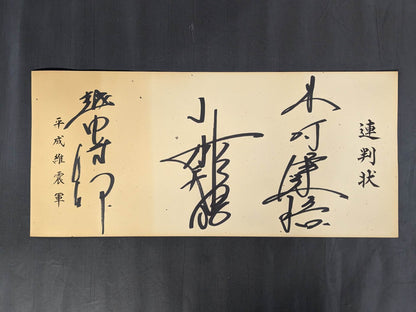 連判状
木村健悟
小林邦昭
越中詩郎
平成維震軍